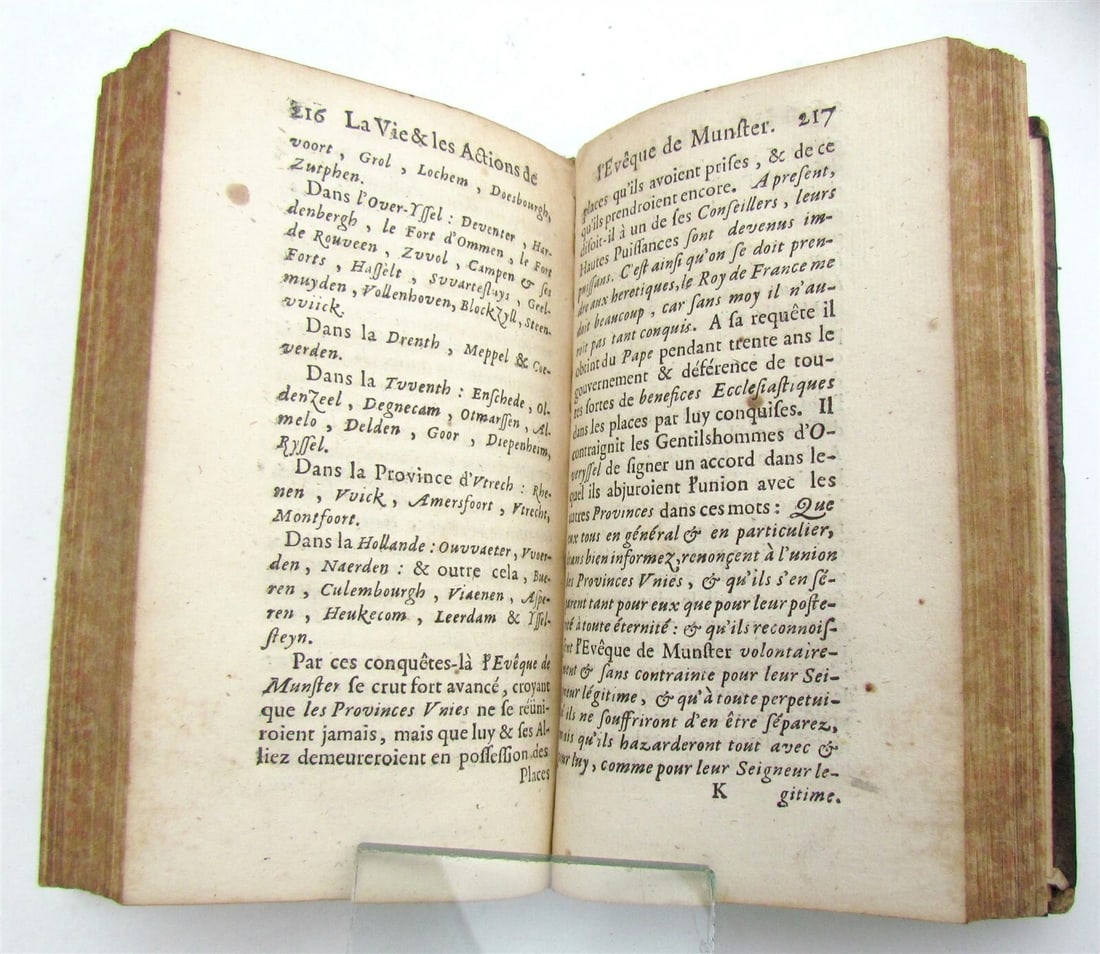 216 La Vie & les Actions de
voort , Grol , Lochem , Doesbourgh,
Zutphen.
Dans l'Over-Yſſel : Deventer , Har-
denbergh , le Fort d'Ommen , le Fort
de Rouveen , Zvvol , Campen & ſes
Forts , Haſſelt , Svvarteſluys , Geel-
muyden , Vollenhoven, BlockZyll, Steen-
vviick.
Dans la Drenth , Meppel & Coe-
verden.
Dans la Tvventh : Enſchede , Ol-
denZeel , Degnecam , Otmarſſen , Al-
melo , Delden , Goor , Diepenheim,
Ryſſel.
Dans la Province d'Vtrech : Rhe-
nen , Vvick , Amersfoort , Vtrecht,
Montfoort.
Dans la Hollande : Ouvvaeter, Vvoer-
den , Naerden : & outre cela , Bue-
ren , Culembourgh , Viaenen , Aſpe-
ren , Heukecom , Leerdam & Yſſel-
ſteyn.
Par ces conquêtes-là l'Evêque de
Munſter ſe crut fort avancé, croyant
que les Provinces Vnies ne ſe réüni-
roient jamais, mais que luy & ſes Al-
liez demeureroient en poſſeſſion des
Places
l'Evêque de Munſter. 217
places qu'ils avoient priſes , & de ce
qu'ils prendroient encore. A preſent,
diſoit-il à un de ſes Conſeillers , leurs
Hautes Puiſſances ſont devenus im-
puiſſans. C'eſt ainſi qu'on se doit pren-
dre aux heretiques, le Roy de France me
doit beaucoup , car ſans moy il n'au-
roit pas tant conquis. A ſa requête il
obtint du Pape pendant trente ans le
gouvernement & déférence de tou-
tes ſortes de benefices Eccleſiaſtiques
dans les places par luy conquiſes. Il
contraignit les Gentilshommes d'O-
veryſſel de ſigner un accord dans le-
quel ils abjuroient l'union avec les
autres Provinces dans ces mots : Que
eux tous en général & en particulier,
ſans bien informez, renonçent à l'union
des Provinces Vnies , & qu'ils s'en ſé-
parent tant pour eux que pour leur poſte-
rité à toute éternité : & qu'ils reconnoiſ-
ſent l'Evêque de Munſter volontaire-
ment & ſans contrainte pour leur Sei-
gneur légitime , & qu'à toute perpetui-
té ils ne ſouffriront d'en être ſéparez,
mais qu'ils hazarderont tout avec &
pour luy , comme pour leur Seigneur le-
K gitime.